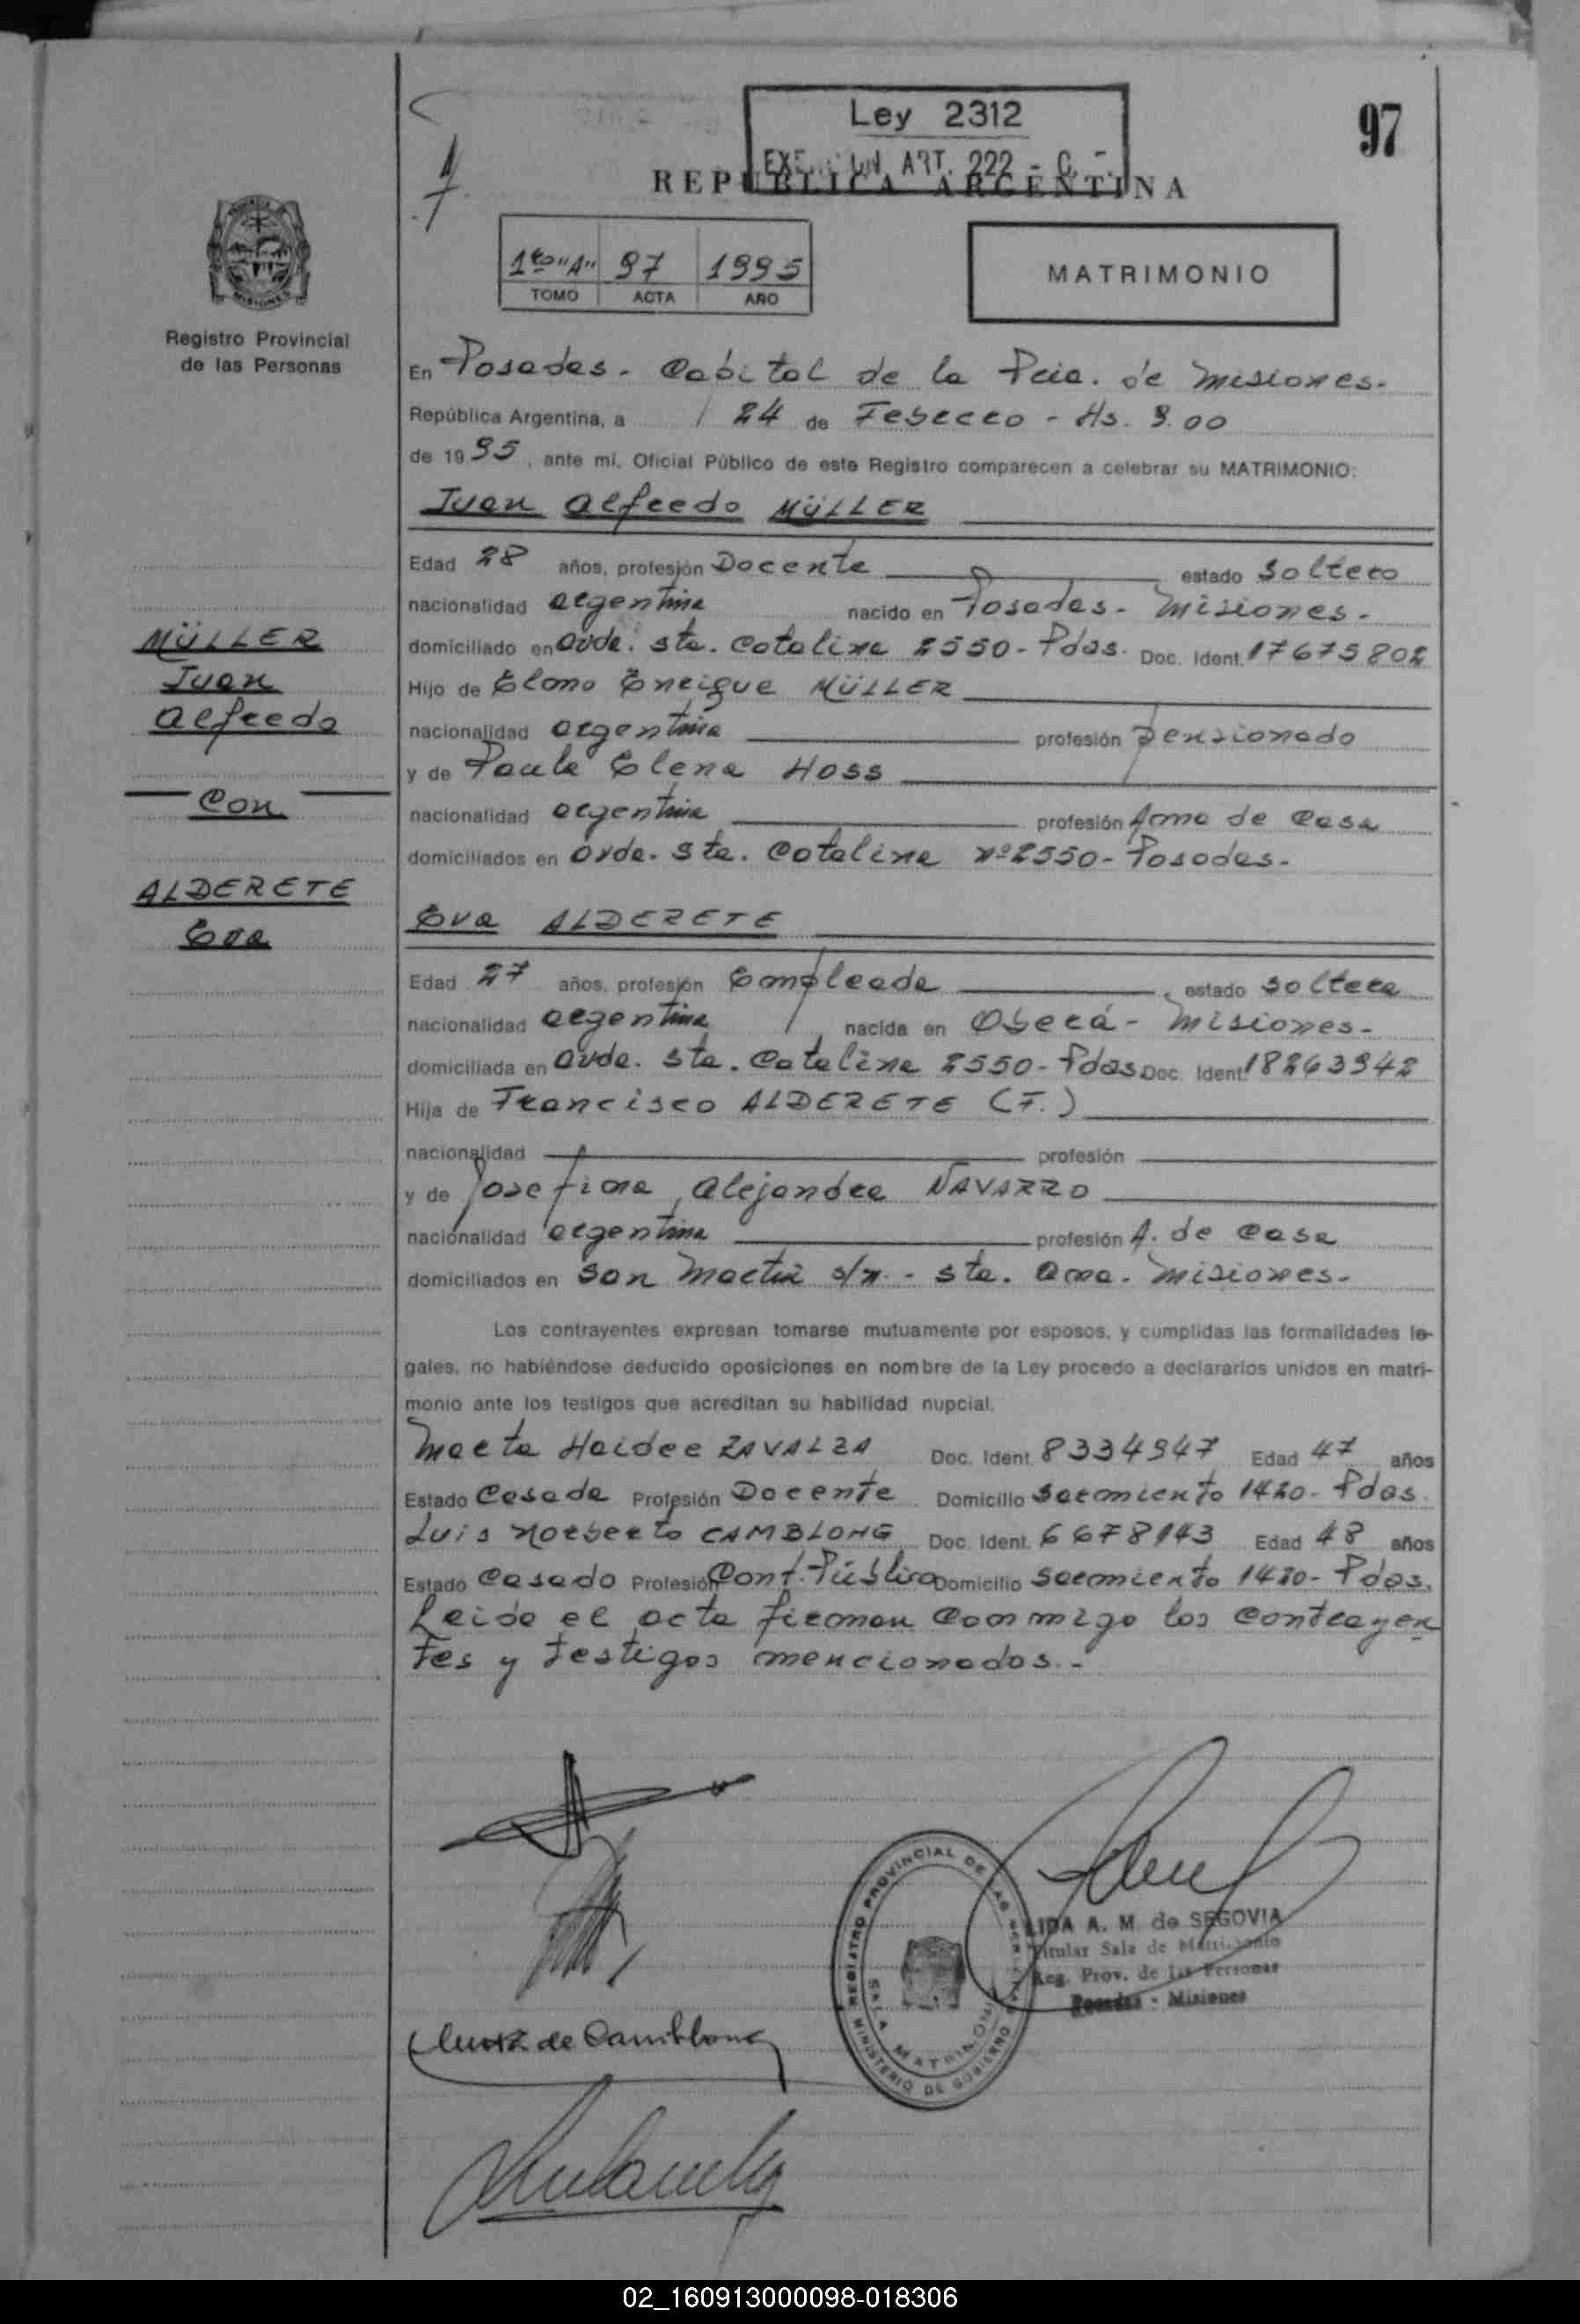 Ley 2312
ART. 222 - C.
97
REPUBLICA ARGENTINA
1ro "A" 97 1995
TOMO ACTA AÑO
MATRIMONIO
Registro Provincial
de las Personas
En Posadas - Capital de la Pcia. de Misiones.-
República Argentina, a 24 de Febrero - Hs. 9.00
de 1995, ante mí, Oficial Público de este Registro comparecen a celebrar su MATRIMONIO:
Juan Alfredo MÜLLER
Edad 28 años, profesión Docente estado soltero
nacionalidad argentina nacido en Posadas - Misiones.-
domiciliado en Avda. Sta. Catalina 2550 - Pdas. Doc. Ident. 17675802
Hijo de Enrique MÜLLER
nacionalidad argentina profesión pensionado
y de Paula Elena HOSS
nacionalidad argentina profesión Ama de Casa
domiciliados en Avda. Sta. Catalina nº 2550 - Posadas.-
MÜLLER
Juan
Alfredo
Con
ALDERETE
Eva
Eva ALDERETE
Edad 27 años, profesión Empleada estado soltera
nacionalidad argentina nacida en Oberá - Misiones.-
domiciliada en Avda. Sta. Catalina 2550 - Pdas Doc. Ident. 18263942
Hija de Francisco ALDERETE (F.)
nacionalidad profesión
y de Josefina Alejandra NAVARRO
nacionalidad argentina profesión A. de Casa
domiciliados en San Martín s/n. - Sta. Ana - Misiones.-
Los contrayentes expresan tomarse mutuamente por esposos, y cumplidas las formalidades le-
gales, no habiéndose deducido oposiciones en nombre de la Ley procedo a declararlos unidos en matri-
monio ante los testigos que acreditan su habilidad nupcial.
Marta Haidee ZAVALZA Doc. Ident. 8334947 Edad 47 años
Estado Casada Profesión Docente Domicilio Sarmiento 1420 - Pdas.
Luis Norberto CAMBLONG Doc. Ident. 6678143 Edad 48 años
Estado Casado Profesión Cont. Público Domicilio Sarmiento 1420 - Pdas.
Leída el acta firman conmigo los contrayen
tes y testigos mencionados.-
de Camblong
REGISTRO PROVINCIAL DE LAS PERSONAS
SALA MATRIMONIO
MINISTERIO DE GOBIERNO
LIDA A. M. de SEGOVIA
Titular Sala de Matrimonio
Reg. Prov. de las Personas
Posadas - Misiones
02_160913000098-018306